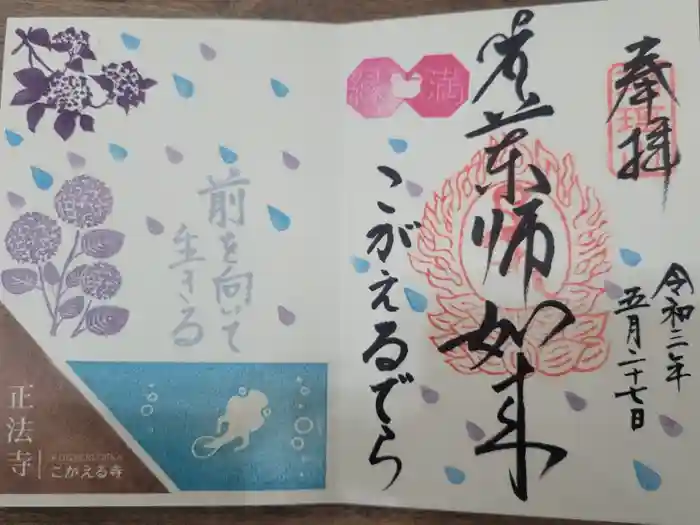 奉拝
令和三年
五月二十七日
薬師如来
満
縁
こがえるでら
前を向いて
生きる
正法寺
こがえる寺